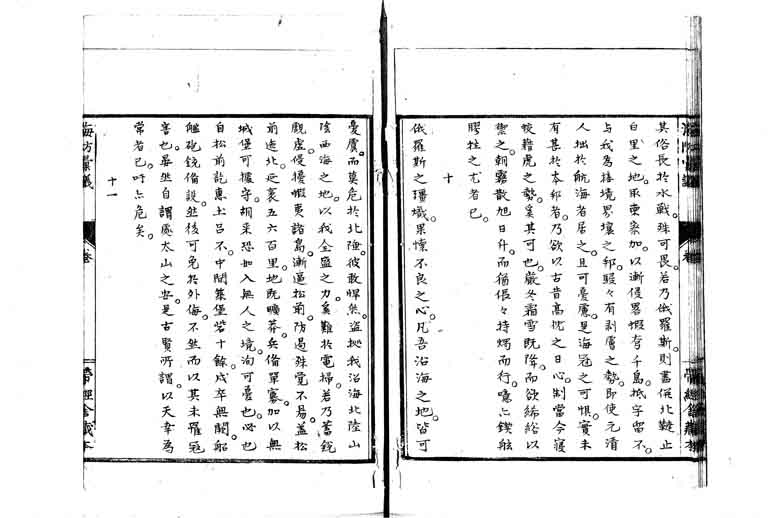 其俗長於水戰。殊可畏。若乃俄羅斯則盡從北韃止
白里之地。東察加。以漸侵畧蝦夷千島。抵字留不。
与我為接境界壤之邦。駸々有剥膚之勢。即使元清
人拙於航海者居之。且可憂慮。是海寇之可惧。實未
有甚於本邦者。乃欲以古昔高枕之日心。制當今寝
藉虎之勢。奚其可也。嚴冬霜雪既降。而欲絺綌以
禦之。朝霧散旭日升。而猶倀々持燭而行。噫亦鍥舩
膠柱之尤者已。
十
俄羅斯之彊熾。果懐不良之心。凡吾沿海之地。皆可
憂虞。而莫危於北陸。彼敢悍然。盗拠我沿海北陸山
陰西海之地。以我全盛之力。奚難於電掃。若乃蓄鋭
覬虚。侵擾蝦夷諸島。漸逼松前。防遏殊覚不易。蓋松
前迤北。延袤五六百里。地既曠莽。兵備單寡。加以無
城堡可據守。胡来恐如入無人之境。洵可憂也。必也
自松前訖惠土呂不。中間築堡砦十餘。戍卒無闕。船
艦砲銃備設。然後可免於外侮。不然而以其未罹寇
害也。晏然自謂處太山之安。是古賢所謂以天幸為
常者已。吁亦危矣。
十一
海防彙議
卷
帶經舎藏本